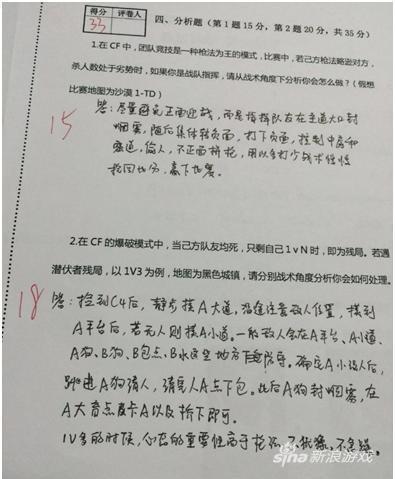 得分 评卷人
33
四、分析题（第 1 题 15 分，第 2 题 20 分，共 35 分）
1.在 CF 中，团队竞技是一种枪法为王的模式，比赛中，若己方枪法略逊对方，
杀人数处于劣势时，如果你是战队指挥，请从战术角度下分析你会怎么做？（假想
比赛地图为沙漠 1-TD）
15
答：尽量避免正面迎战，而是指挥队友在主道大口封
烟雾，随后集体转负面，打下负面，控制中房和
隧道，偷人，不正面拼枪，用以多打少战术慢慢
抢回比分，赢下比赛。
2.在 CF 的爆破模式中，当己方队友均死，只剩自己 1 v N 时，即为残局。若遇
潜伏者残局，以 1V3 为例，地图为黑色城镇，请分别战术角度分析你会如何处理。
18
答：捡到C4后，静步摸A大道，沿途注意敌人位置，摸到
A平台后，若无人则摸A小道。一般敌人会在A平台、A小道、
A狗、B狗、B包点、B水这些地方防守。确定A小没人后，
跳进A狗清人，清完人A点下包。此后A狗封烟雾，在
A大盲点卡A以及拆下即可。
1V多的时候，心态的重要性高于枪法，不犹豫，不急躁。
sina 新浪游戏